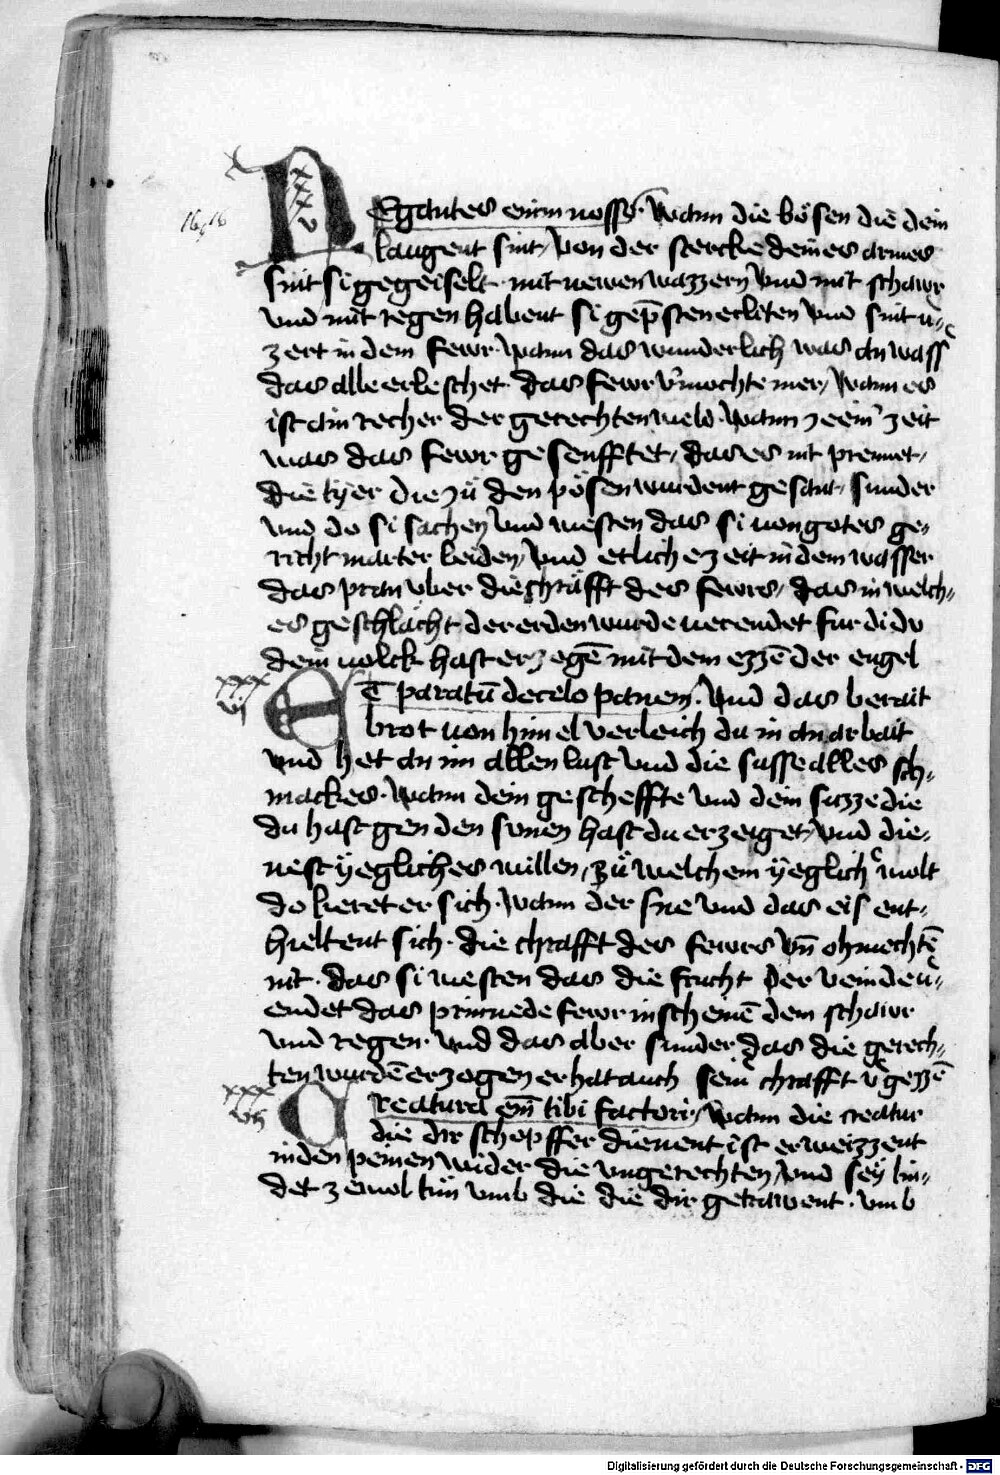 xxxv
16,16
NEgantes enim nosse. wann die bösen die dein
laugent sint / von der stercke deines armes
sint si gegeiselt. mit newen wazzern vnd mit schawr
vnd mit regen habent si
zert in dem fewr. wann das wunderlich was an wass
das alle erleschet das fewr v'mochte mer / wann es
ist ain recher der gerechten welt. wann zeein' zeit
was das fewr gesenfftet / das es nit prennet /
die tyer die zü den pösen wurdent gesant / sunder
vnd do si sachen vnd westen das si von gotes ge-
richt marter leiden / vnd etliche zeit in dem wasser
das pran vber die chräfft des fewrs / das in welch-
es geschlächt der erden wurde verendet fur di du
dein volck hast erzogē mit dem ezzē der engel
xxxvj
ET paratū de celo panem. vnd das berait
brot von himel verleich du in an arbait
vnd het an im allen lust vnd die susse alles sch-
mackes. wann dein gescheffte vnd dein suzze die
du hast gen den sunen hast du erzeiget / vnd die-
nest yegliches willen / zü welchem yeglich' wolt
do keret er sich. wann der sne vnd das eis ent-
hieltent sich. die chrafft des fewrs vn̄ ohmechtē
nit. das si westen das die frucht der veinde v'-
endet das prinnede fewr in schemē dem schawr
vnd regen. vnd das aber sunder das die gerech-
ten wurdē erzogen er hat auch sein' chrafft v'gezzē
xxxvij
CReatura em̄ tibi factori / wann die creatur
die dir schepffer dienent ist erweizzent
in den peinen wider die vngerechten / vnd sey lin-
det ze wol tün vmb die die dir getrawent. vmb
Digitalisierung gefördert durch die Deutsche Forschungsgemeinschaft - DFG